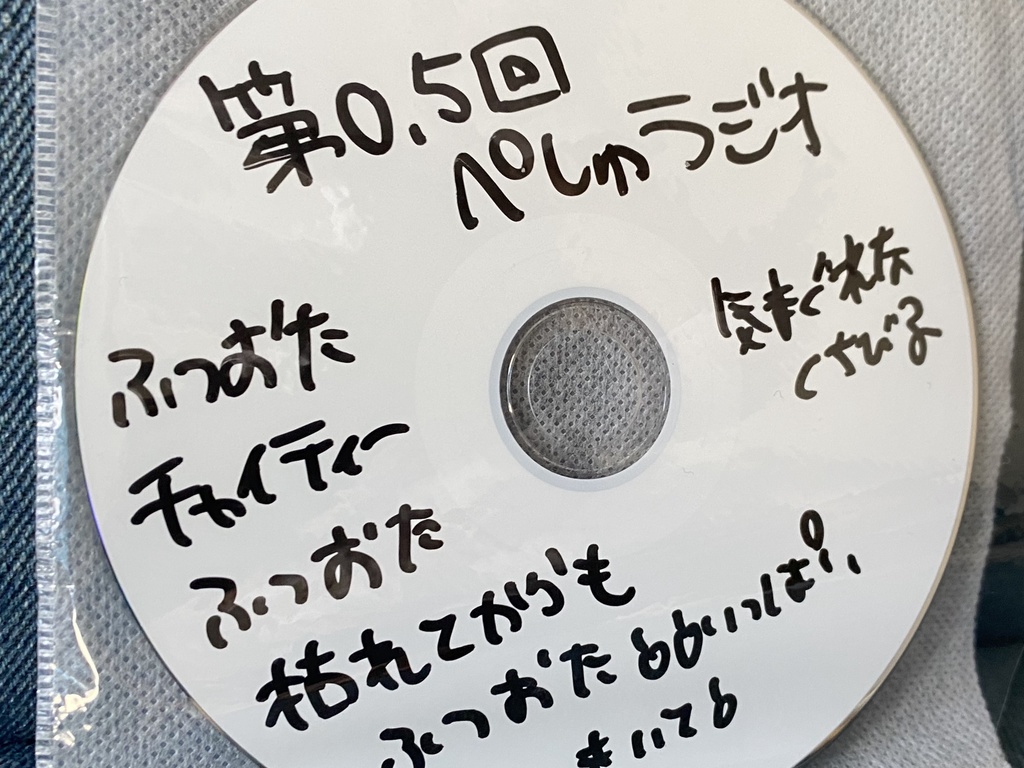 第0.5回
ぺしゅラジオ
気まぐれな
くさびる
ふつおた
チャイティー
ふつおた
枯れてからも
ふつおためめいっぱい
きいてる